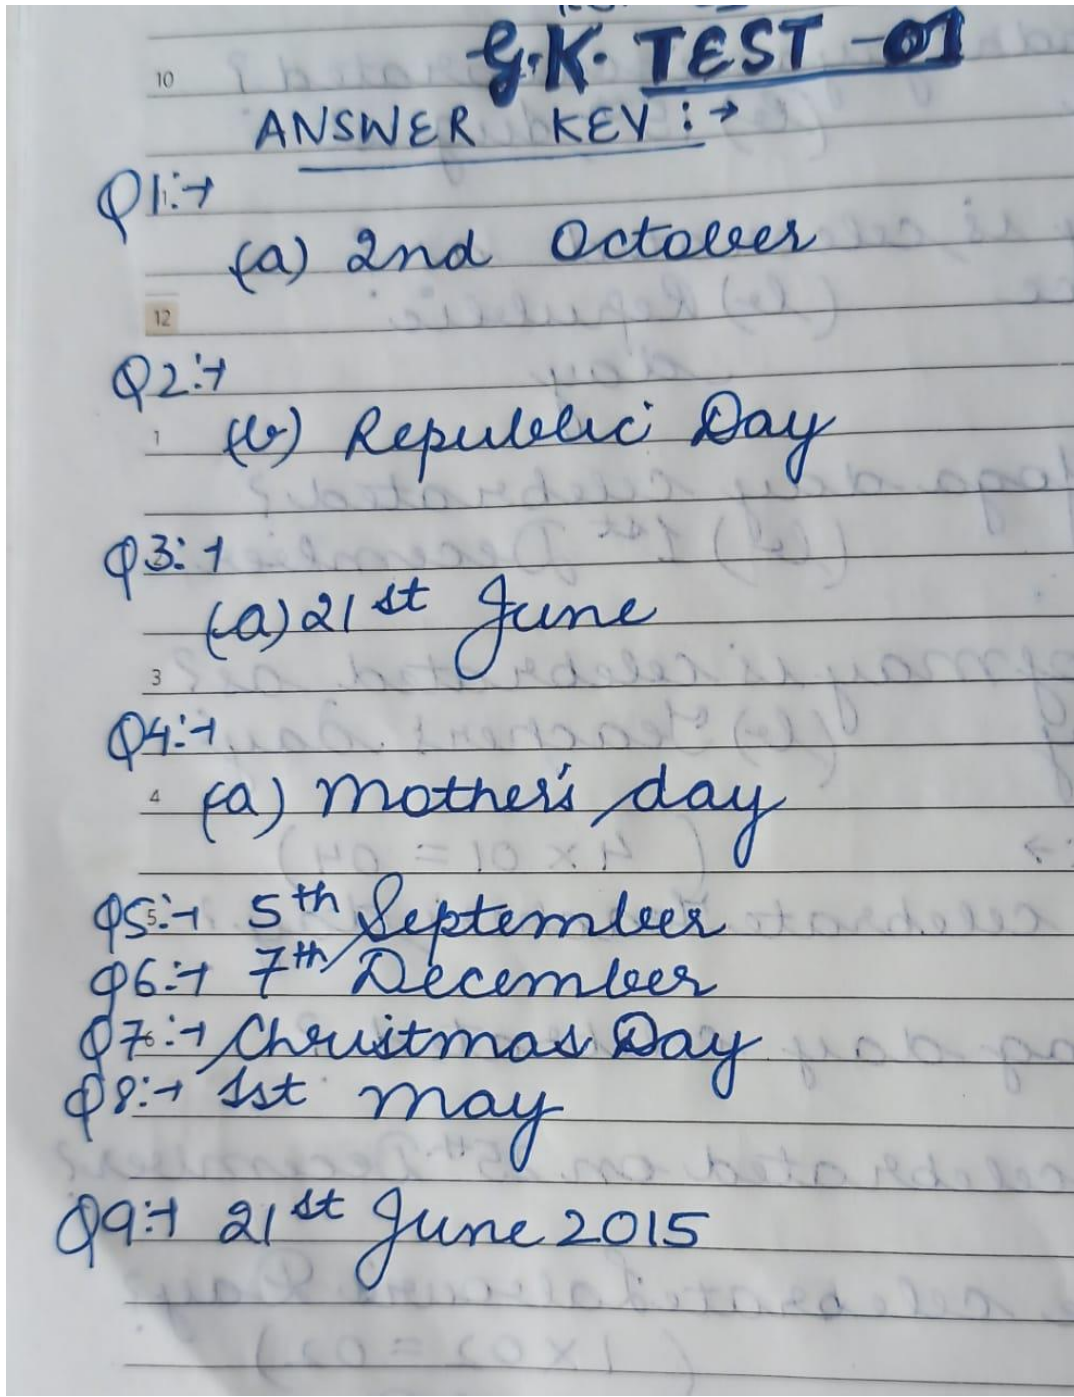 G.K. TEST -01
10
ANSWER KEY :→
Q1:→
(a) 2nd October
12
Q2:→
1 (b) Republic Day
Q3:→
(a) 21st June
3
Q4:→
4 (a) Mother's day
Q5:→ 5th September
Q6:→ 7th December
Q7:→ Christmas Day
Q8:→ 1st May
Q9:→ 21st June 2015